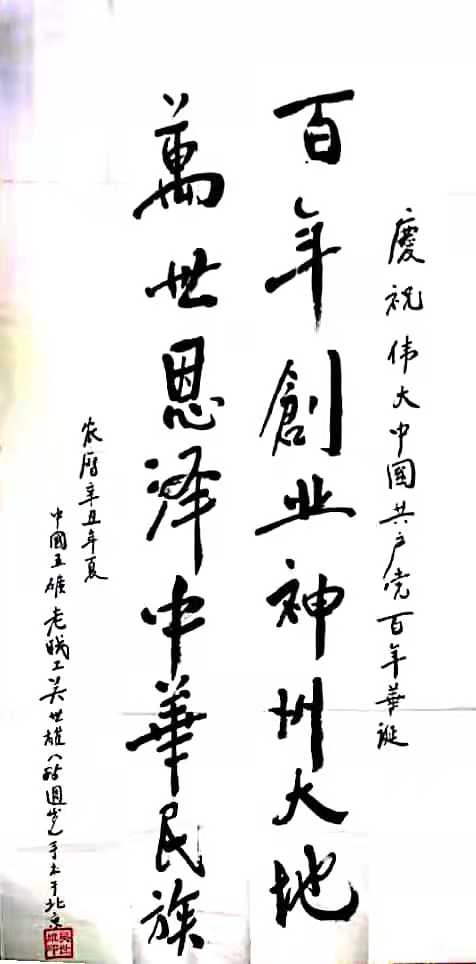 慶祝伟大中國共产党百年華诞
百年創业神州大地
萬世恩泽中華民族
农曆辛丑年夏
中國五礦老職工吴世雄八週岁手书于北京
吴世雄印